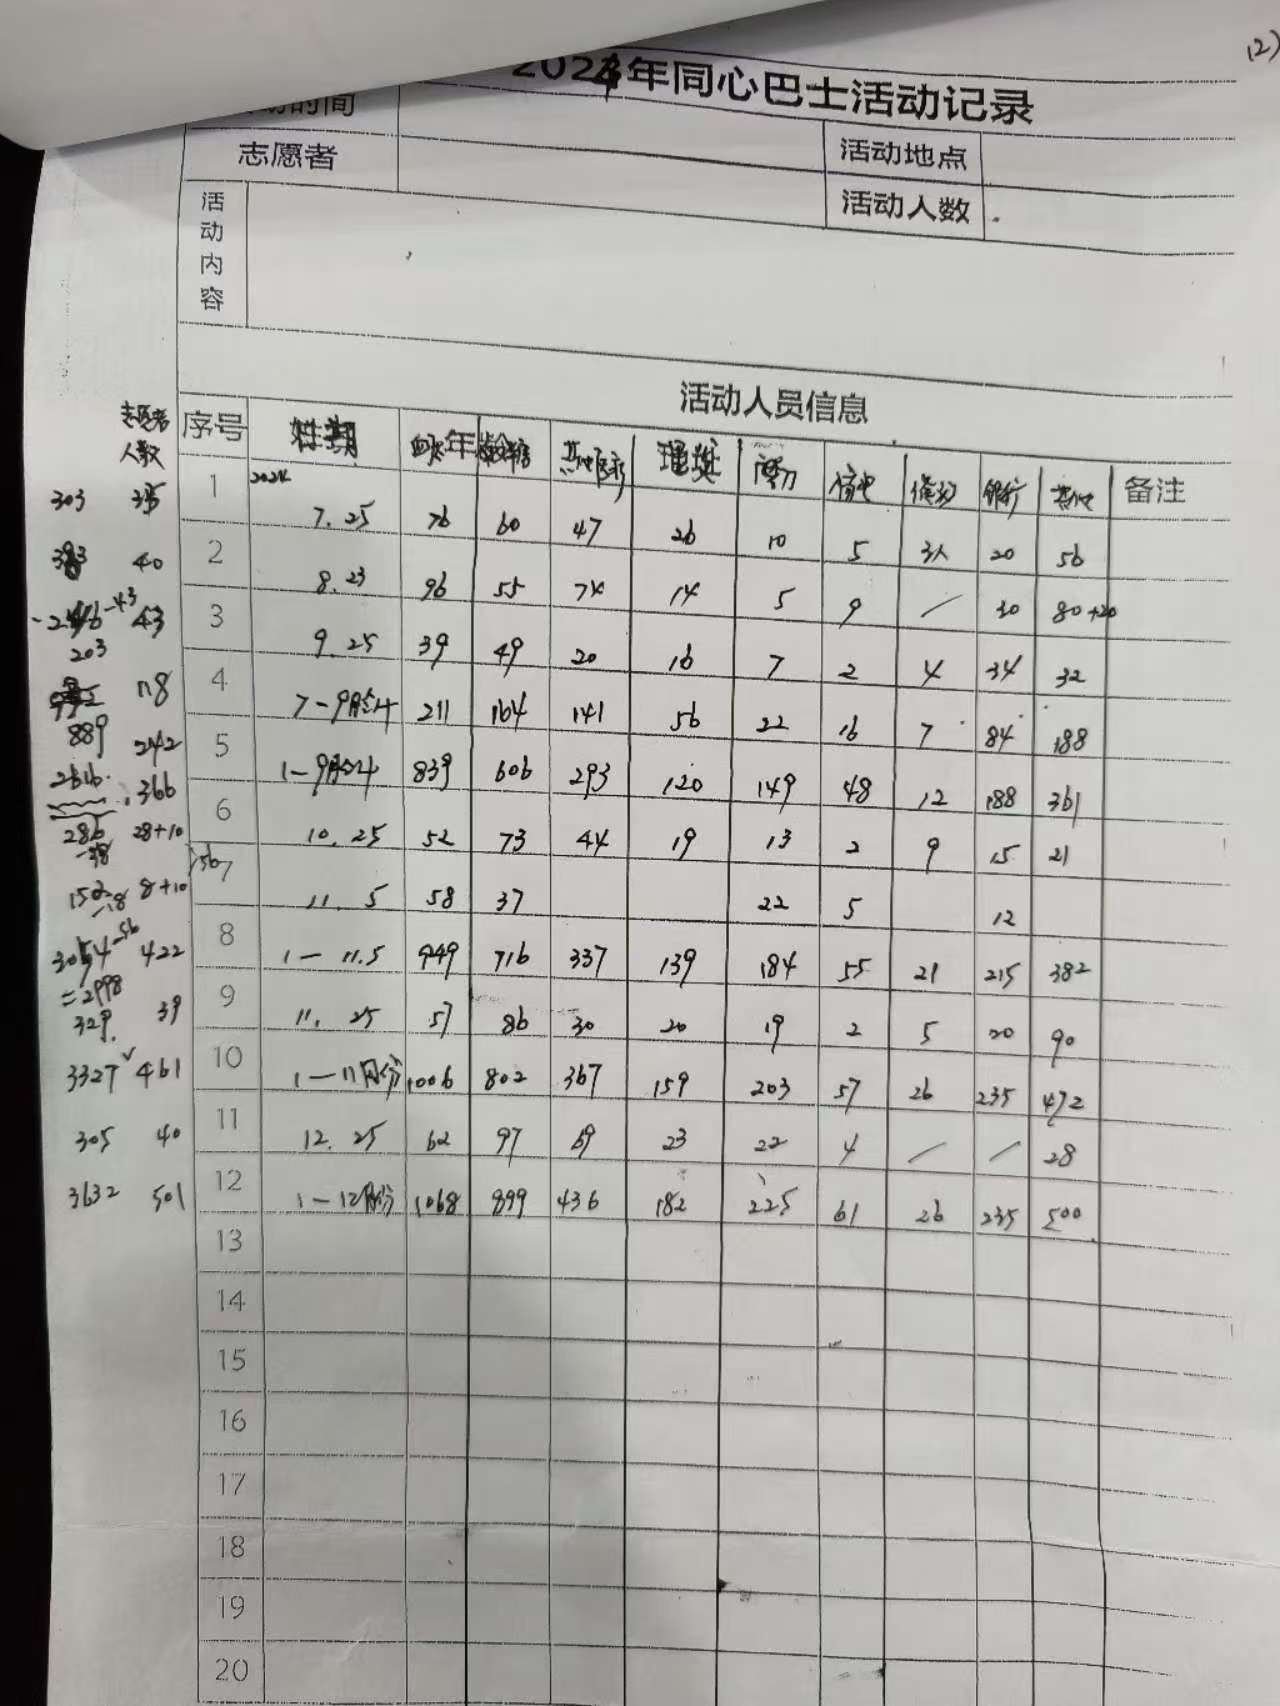 12)
2024年同心巴士活动记录
动时间
志愿者 活动地点
活动人数
活动内容
活动人员信息
志愿者人数 序号 年龄 理发 银行 其他 备注
303 35 1 2024 7.25 76 60 47 26 10 5 3人 20 56
383 40 2 8.23 96 55 74 14 5 9 / 30 80+20
-43 43 3 9.25 39 49 20 16 7 2 4 34 32
203
118 4 7-9月合计 211 164 141 56 22 16 7 84 188
889
242 5 1-9月合计 839 606 293 120 149 48 12 188 361
2616 366
286 28+10 6 10.25 52 73 44 19 13 2 9 15 21
-38
152 8+10 56 7 11.5 58 37 22 5 12
-18
3054-56 422 8 1-11.5 949 716 337 139 184 55 21 215 382
=2998
329 39 9 11.25 57 86 30 20 19 2 5 20 90
3327 461 10 1-11月份 1006 802 367 159 203 57 26 235 472
305 40 11 12.25 62 97 69 23 22 4 / / 28
3632 501 12 1-12月份 1068 899 436 182 225 61 26 235 500
13
14
15
16
17
18
19
20